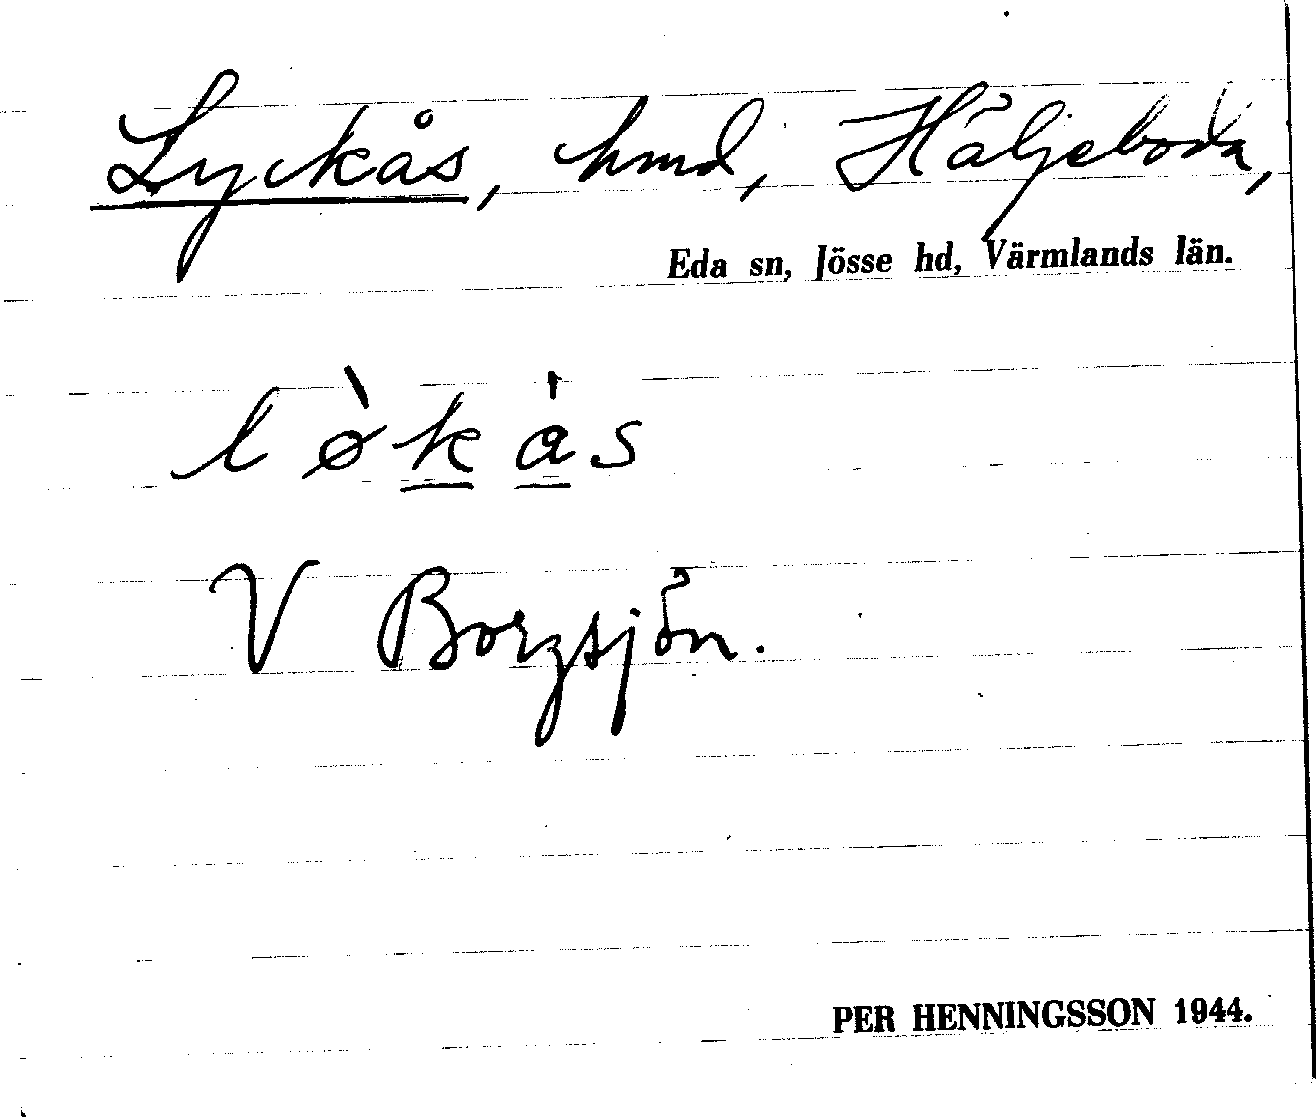 Lyckås, hmd, Häljeboda,
Eda sn, Jösse hd, Värmlands län.
lø̀kås
V Borgsjön.
PER HENNINGSSON 1944.